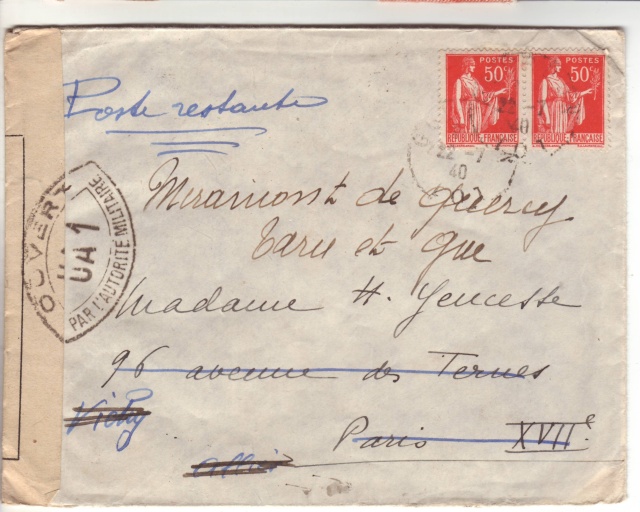 Poste restante
POSTES
50c
RÉPUBLIQUE FRANÇAISE
POSTES
50c
RÉPUBLIQUE FRANÇAISE
22 -7
40
OUVERT
UA1
PAR L'AUTORITÉ MILITAIRE
Miramont de Quercy
Tarn et Gne
Madame H.
96 avenue des Ternes
Vichy
Paris XVIIe
Allier